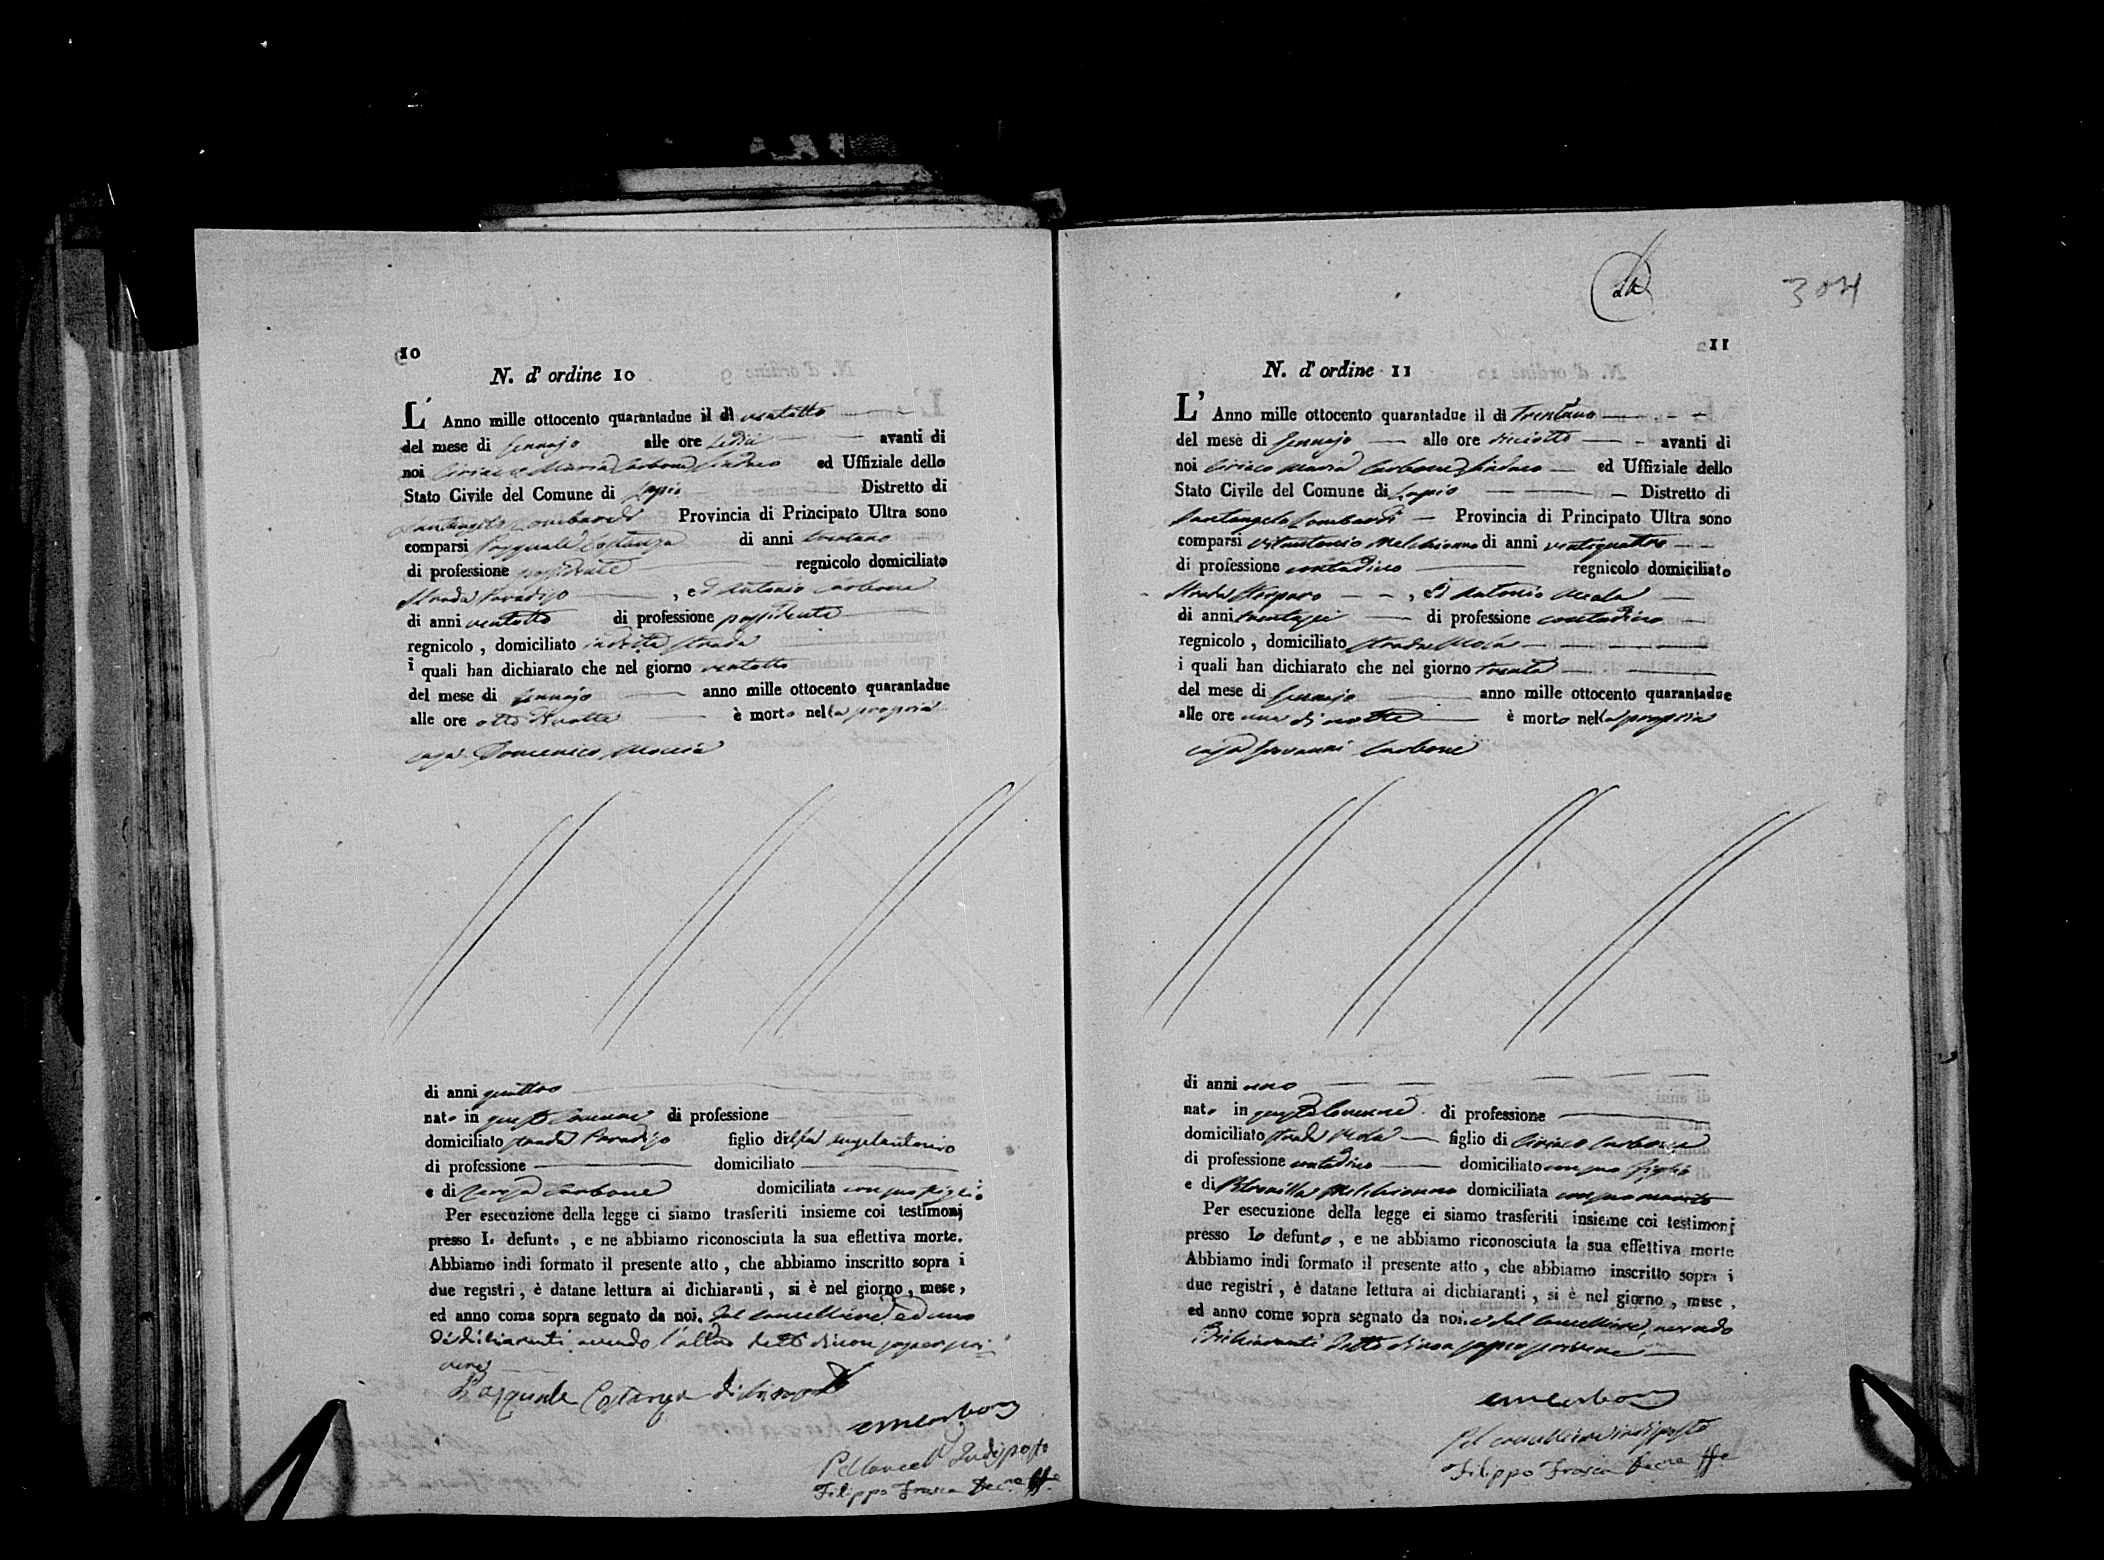 10
N. d' ordine 10
L' Anno mille ottocento quarantadue il dì ventotto
del mese di Gennajo alle ore sedici avanti di
noi Ciriaco Maria Carbone Sindaco ed Uffiziale dello
Stato Civile del Comune di Lapio Distretto di
Santangelo Lombardi Provincia di Principato Ultra sono
comparsi Pasquale Costanza di anni trentuno
di professione possidente regnicolo domiciliato
Strada Paradiso , ed Antonio Carbone
di anni ventotto di professione possidente
regnicolo , domiciliato in detta strada
i quali han dichiarato che nel giorno ventotto
del mese di Gennajo anno mille ottocento quarantadue
alle ore otto di notte è morto nella propria
casa Domenico
di anni quattro
nato in questo Comune di professione
domiciliato strada Paradiso figlio di
di professione domiciliato
e di Carbone domiciliata con suo figlio
Per esecuzione della legge ci siamo trasferiti insieme coi testimonj
presso lo defunto , e ne abbiamo riconosciuta la sua effettiva morte.
Abbiamo indi formato il presente atto , che abbiamo inscritto sopra i
due registri , è datane lettura ai dichiaranti , si è nel giorno , mese ,
ed anno coma sopra segnato da noi. dal cancelliere, ed uno
de dichiaranti avendo l'altro detto di non saper scri-
vere
Pasquale Costanza dichiarante
CMCarbone
Pel Cancell. Indisposto
Filippo Frasca
304
11
N. d' ordine 11
L' Anno mille ottocento quarantadue il dì Trentuno
del mese di Gennajo alle ore diciotto avanti di
noi Ciriaco Maria Carbone Sindaco ed Uffiziale dello
Stato Civile del Comune di Lapio Distretto di
Santangelo Lombardi Provincia di Principato Ultra sono
comparsi Vitantonio Melchionno di anni ventiquattro
di professione contadino regnicolo domiciliato
Strada , ed Antonio
di anni trentasei di professione contadino
regnicolo , domiciliato strada Mola
i quali han dichiarato che nel giorno trenta
del mese di Gennajo anno mille ottocento quarantadue
alle ore una di notte è morto nella propria
casa Giovanni Carbone
di anni uno
nato in questo Comune di professione
domiciliato strada Mola figlio di Ciriaco Carbone
di professione contadino domiciliato con suo figlio
e di Petronilla Melchionno domiciliata con suo marito
Per esecuzione della legge ci siamo trasferiti insieme coi testimonj
presso lo defunto , e ne abbiamo riconosciuta la sua effettiva morte
Abbiamo indi formato il presente atto , che abbiamo inscritto sopra i
due registri , è datane lettura ai dichiaranti , si è nel giorno , mese ,
ed anno come sopra segnato da noi. e dal Cancelliere, avendo
i dichiaranti detto di non saper scrivere
CMCarbone
Pel cancelliere indisposto
Filippo Frasca